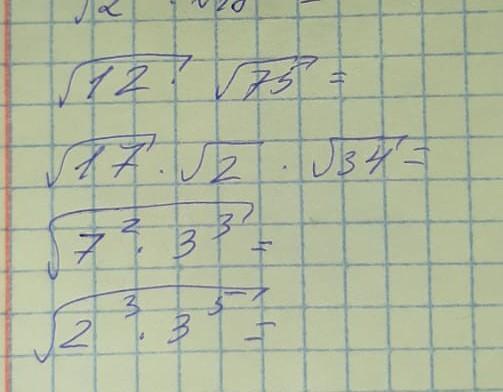 √2 · √18 =
√12 · √75 =
√17 · √2 · √34 =
√7² · 3³ =
√2³ · 3⁵ =